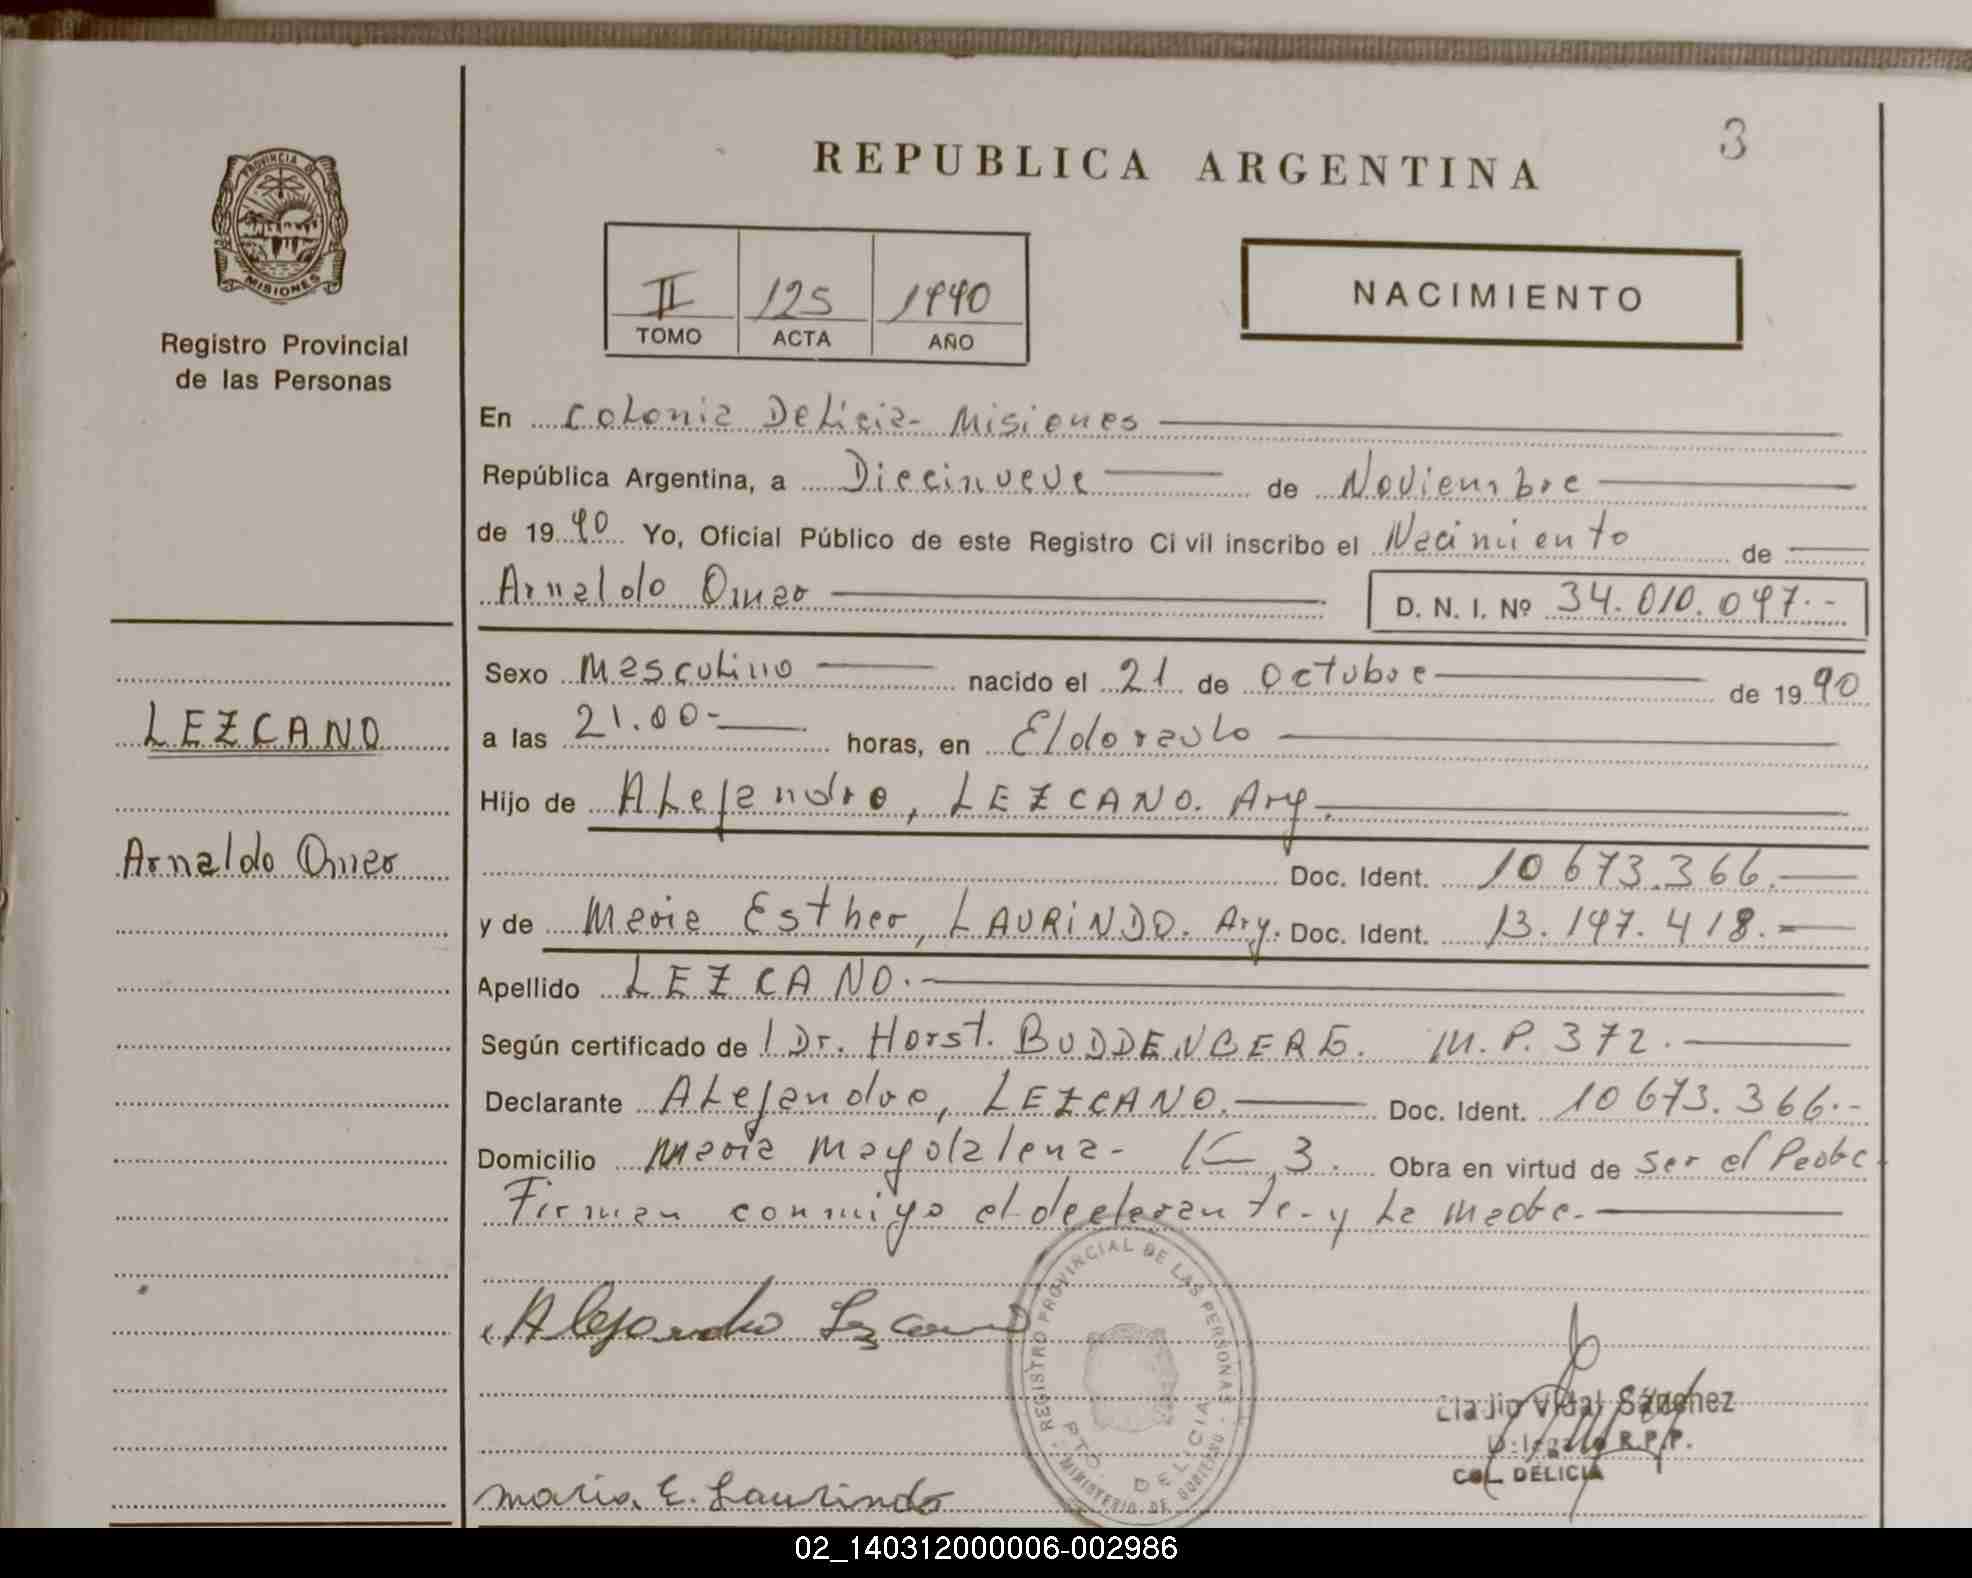 3
REPUBLICA ARGENTINA
PROVINCIA DE
MISIONES
Registro Provincial
de las Personas
II 125 1990
TOMO ACTA AÑO
NACIMIENTO
En Colonia Delicia- Misiones
República Argentina, a Diecinueve de Noviembre
de 1990 Yo, Oficial Público de este Registro Civil inscribo el Nacimiento de
Arnaldo Omar D. N. I. Nº 34.010.097.-
Sexo Masculino nacido el 21 de Octubre de 1990
LEZCANO
a las 21.00- horas, en Eldorado
Hijo de Alejandro, LEZCANO. Arg.
Arnaldo Omar
Doc. Ident. 10 673.366.
y de Maria Esther, LAURINDO. Arg. Doc. Ident. 13.197.418.-
Apellido LEZCANO.
Según certificado de l Dr. Horst. BUDDENBERG. M.P. 372.
Declarante Alejandro, LEZCANO. Doc. Ident. 10 673.366.-
Domicilio Maria Magdalena- K 3. Obra en virtud de Ser el Padre.
Firman conmigo el declarante- y la madre.-
Alejandro Lezcano
REGISTRO PROVINCIAL DE LAS PERSONAS
MINISTERIO DE GOBIERNO
PTO. DELICIA
Cladio Vidal Sánchez
Delegado R.P.P.
COL. DELICIA
Maria E. Laurindo
02_140312000006-002986